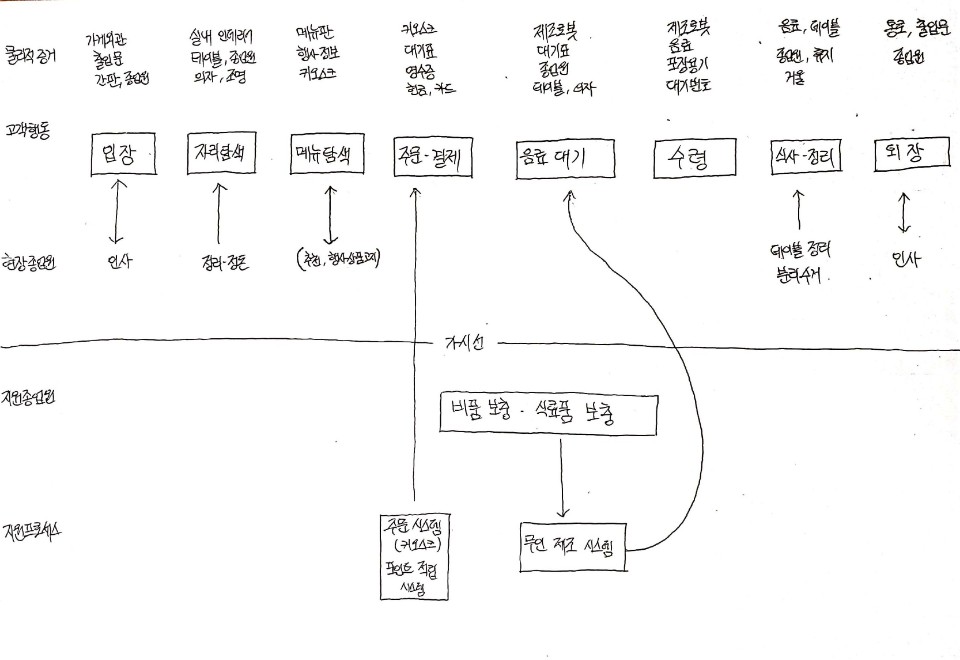 물리적 증거
가게외관
출입문
간판, 종업원
실내 인테리어
테이블, 종업원
의자, 조명
메뉴판
행사정보
키오스크
키오스크
대기표
영수증
현금, 카드
제조로봇
대기표
종업원
테이블, 의자
제조로봇
음료
포장용기
대기번호
음료, 테이블
종업원, 휴지
거울
통로, 출입문
종업원
고객행동
입장
자리탐색
메뉴탐색
주문-결제
음료 대기
수령
식사-정리
퇴장
현장종업원
인사
정리-정돈
(추천, 행사-상품고지)
테이블 정리
분리수거
인사
가시선
지원종업원
비품 보충 - 식료품 보충
지원프로세스
주문 시스템
(키오스크)
포인트 적립
시스템
무인 제조 시스템